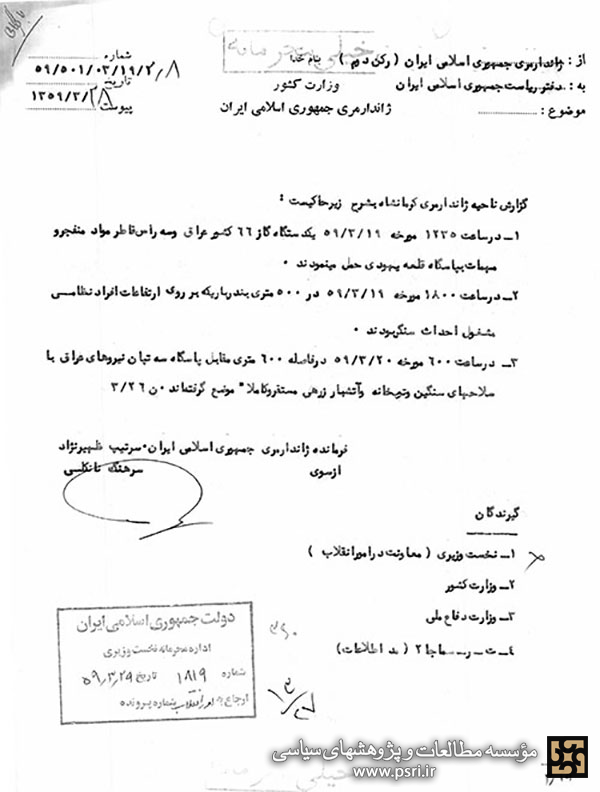 خیلی محرمانه
از : ژاندارمری جمهوری اسلامی ایران ( رکن دوم )
بنام خدا
به : دفتر ریاست جمهوری اسلامی ایران
وزارت کشور
موضوع :
ژاندارمری جمهوری اسلامی ایران
شماره
تاریخ
۱۳۵۹/۳/۲۸
پیوست
گزارش ناحیه ژاندارمری کرمانشاه بشرح زیر حاکیست :
۱ــ در ساعت ۱۲۳۵ مورخه ۵۹/۳/۱۹ یکدستگاه گاز ۶۶ کشور عراق وسه راس قاطر مواد منفجره و
مهمات بپاسگاه قلعه یهودی حمل مینمودند ۰
۲ــ در ساعت ۱۸۰۰ مورخه ۵۹/۳/۱۹ در ۵۰۰ متری بندر باریکه بر روی ارتفاعات افراد نظامی
مشغول احداث سنگربودند ۰
۳ــ در ساعت ۶۰۰ مورخه ۵۹/۳/۲۰ درفاصله ۶۰۰ متری مقابل پاسگاه سه تپان نیروهای عراق با
سلاحهای سنگین وتوپخانه وآتشبار زرهی مستقروکاملا" موضع گرفته‌اند ۰ ن ۳/۲۶
فرمانده ژاندارمری جمهوری اسلامی ایران۰سرتیپ ظهیرنژاد
ازسوی
سرهنگ
گیرندگان
۱ــ نخست وزیری ( معاونت در امور انقلاب )
۲ــ وزارت کشور
۳ــ وزارت دفاع ملی
۴ــ ت ــ ر ــ سماجا ۲ ( مد اطلاعات)
دولت جمهوری اسلامی ایران
اداره محرمانه نخست وزیری
شماره ۱۸۱۹ تاریخ ۵۹٫۳٫۲۹
ارجاع به امور انقلاب شماره پرونده
مؤسسه مطالعات و پژوهشهای سیاسی
www.psri.ir